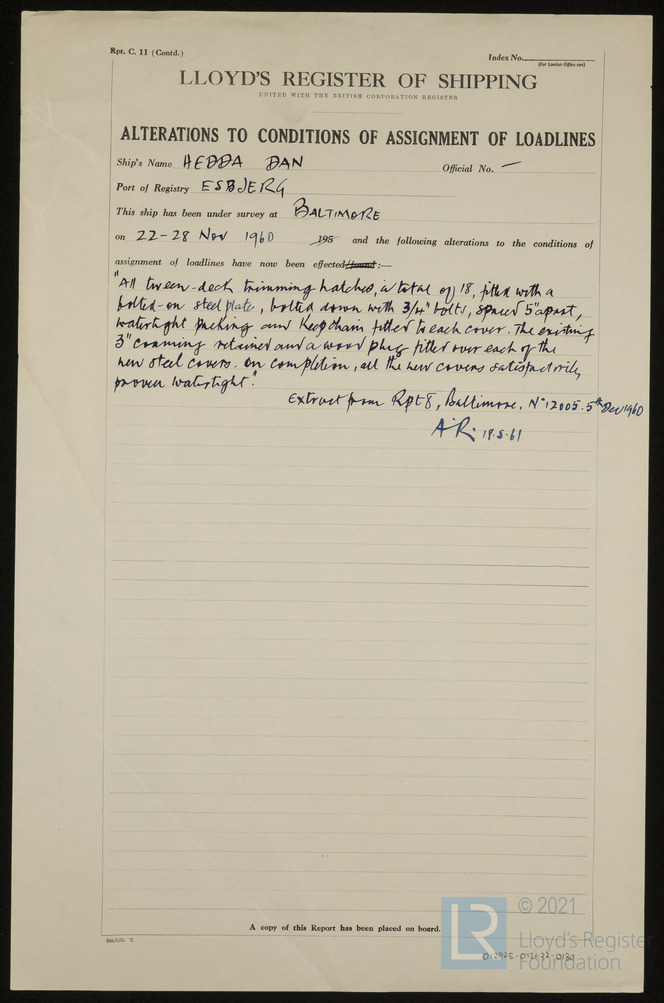 Rpt. C. 11 (Contd.)
Index No.
(For London Office use)
LLOYD'S REGISTER OF SHIPPING
UNITED WITH THE BRITISH CORPORATION REGISTER
ALTERATIONS TO CONDITIONS OF ASSIGNMENT OF LOADLINES
Ship's Name HEDDA DAN Official No. —
Port of Registry ESBJERG
This ship has been under survey at BALTIMORE
on 22-28 Nov 1960 195 and the following alterations to the conditions of
assignment of loadlines have now been effected/found:—
"All tween-deck trimming hatches, a total of 18, fitted with a
bolted-on steel plate, bolted down with 3/4" bolts, spaced 5" apart,
watertight packing and keep chain fitted to each cover. The existing
3" coaming retained and a wood plug fitted over each of the
new steel covers. On completion, all the new covers satisfactorily
proven watertight."
Extract from Rpt 8, Baltimore, No 12005. 5th Dec 1960
A.R. 18.5.61
A copy of this Report has been placed on board.
© 2021
LR
Lloyd's Register
Foundation
012425-012432-0130